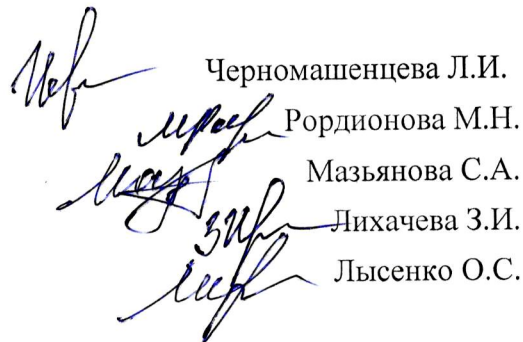 Черномашенцева Л.И.
Рордионова М.Н.
Мазьянова С.А.
Лихачева З.И.
Лысенко О.С.